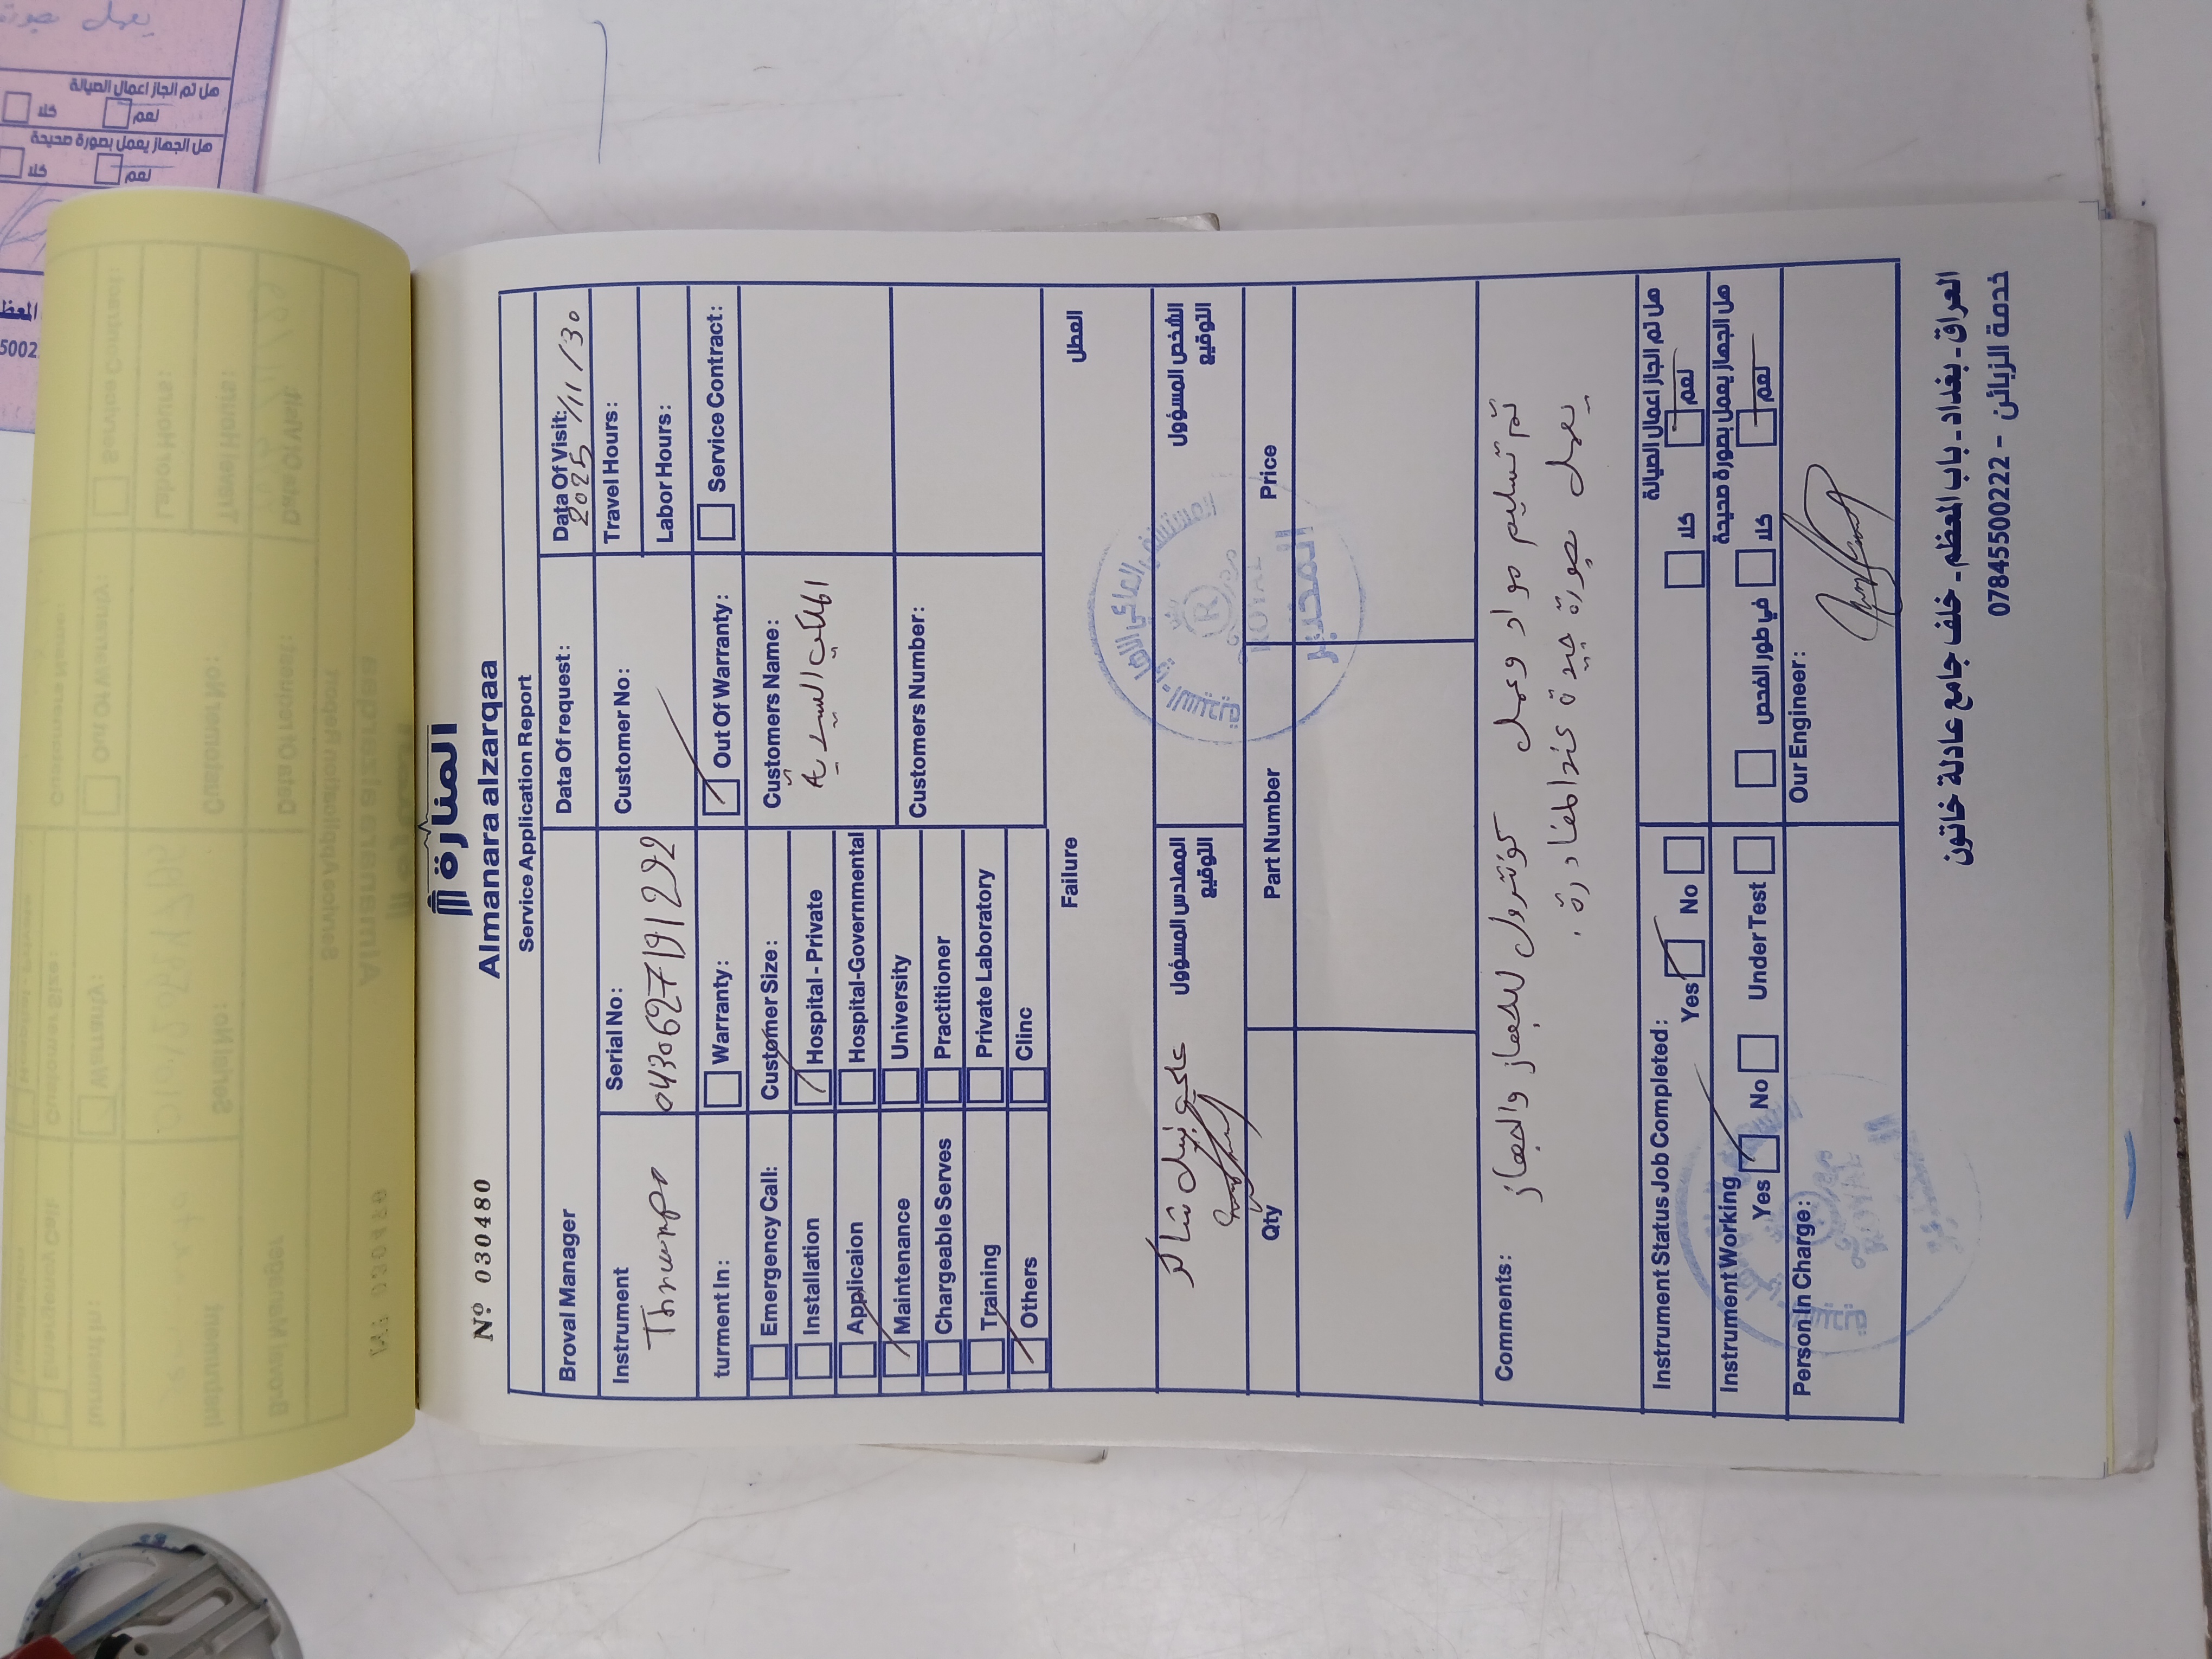 Nº 030480
المنارة
Almanara alzarqaa
Service Application Report
Broval Manager
Data Of request:
Data Of Visit:
2025/11/30
Instrument
Serial No:
0430627191292
Customer No:
Travel Hours:
Labor Hours:
turment In:
Warranty:
Out Of Warranty:
Service Contract:
Emergency Call:
Customer Size:
Customers Name:
Installation
Hospital - Private
Applicaion
Hospital-Governmental
Maintenance
University
Customers Number:
Chargeable Serves
Practitioner
Training
Private Laboratory
Others
Clinc
Failure
العطل
المهندس المسؤول
التوقيع
الشخص المسؤول
التوقيع
علي نبيل شاكر
المختبر
Qty
Part Number
Price
Comments:
تم تسليم مواد وعمل كونترول للجهاز والجهاز
يعمل بصورة جيدة عند المغادرة.
Instrument Status Job Completed:
Yes
No
هل تم انجاز اعمال الصيانة
نعم
كلا
Instrument Working
Yes
No
Under Test
هل الجهاز يعمل بصورة صحيحة
نعم
كلا
في طور الفحص
Person In Charge:
Our Engineer:
العراق - بغداد - باب المعظم - خلف جامع عادلة خاتون
خدمة الزبائن - 07845500222
هل تم انجاز اعمال الصيانة
نعم
كلا
هل الجهاز يعمل بصورة صحيحة
نعم
كلا